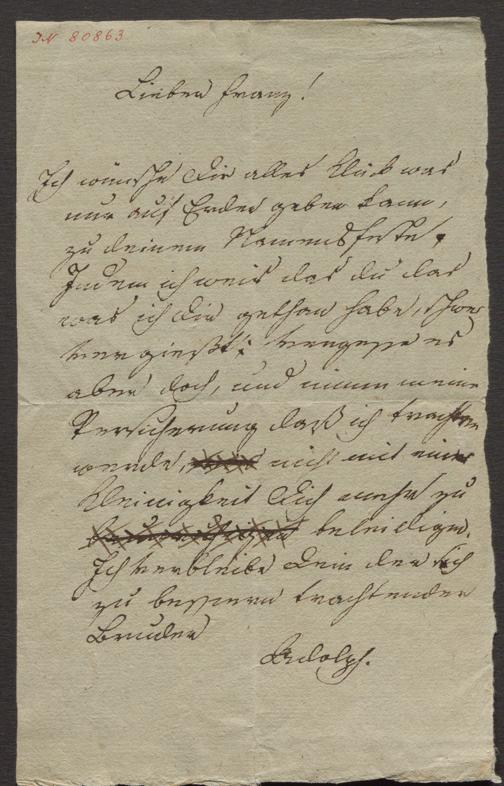 IN 80863
Lieber Franz!
Ich wünsche Dir alles Glück was
nur auf Erden geben kann,
zu deinem Namensfeste,
Indem ich weis das du das
was ich Dir gethan habe, schwer
vergießt; vergesse es
aber doch, und nimm meine
Versicherung daß ich trachten
werde, nicht mit einer
Kleinigkeit Dich mehr zu
beleidigen.
Ich verbleibe Dein der sich
zu bessern trachtender
Bruder
Adolph.